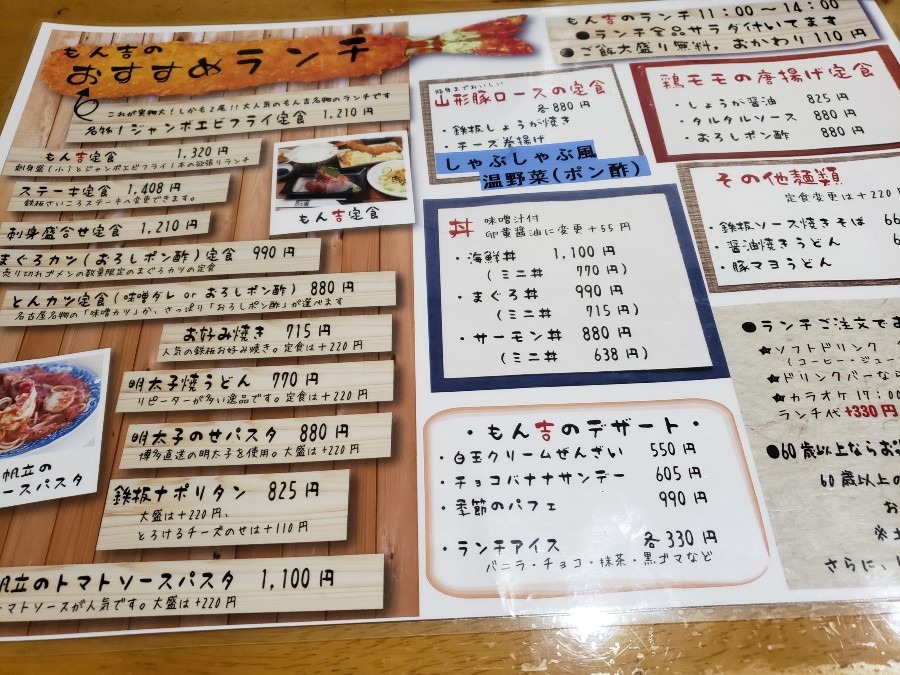 もん吉の
おすすめランチ
これが実物大!しかも2尾!!大人気のもん吉名物のランチです
名物!ジャンボエビフライ定食 1,210円
もん吉定食 1,320円
刺身盛(小)とジャンボエビフライ1本の欲張りランチ
ステーキ定食 1,408円
鉄板さいころステーキへ変更できます。
刺身盛合せ定食 1,210円
まぐろカツ(おろしポン酢)定食 990円
売り切れゴメンの数量限定のまぐろカツの定食
とんカツ定食(味噌ダレ or おろしポン酢) 880円
名古屋名物の「味噌カツ」か、さっぱり「おろしポン酢」が選べます
お好み焼き 715円
人気の鉄板お好み焼き。定食は+220円
明太子焼うどん 770円
リピーターが多い逸品です。定食は+220円
明太子のせパスタ 880円
博多直送の明太子を使用。大盛は+220円
鉄板ナポリタン 825円
大盛は+220円、
とろけるチーズのせは+110円
帆立のトマトソースパスタ 1,100円
トマトソースが人気です。大盛は+220円
もん吉定食
帆立の
ースパスタ
もん吉のランチ 11:00~14:00
●ランチ全品サラダ付いてます
●ご飯大盛り無料,おかわり110円
脂身までおいしい
山形豚ロースの定食
各880円
・鉄板しょうが焼き
・チーズ巻揚げ
しゃぶしゃぶ風
温野菜(ポン酢)
鶏モモの唐揚げ定食
・しょうが醤油 825円
・タルタルソース 880円
・おろしポン酢 880円
丼 味噌汁付
卵黄醤油に変更+55円
・海鮮丼 1,100円
(ミニ丼 770円)
・まぐろ丼 990円
(ミニ丼 715円)
・サーモン丼 880円
(ミニ丼 638円)
その他麺類
定食変更は+220
・鉄板ソース焼きそば 66
・醤油焼きうどん 6
・豚マヨうどん
・もん吉のデザート・
・白玉クリームぜんざい 550円
・チョコバナナサンデー 605円
・季節のパフェ 990円
・ランチアイス 各330円
バニラ・チョコ・抹茶・黒ゴマなど
●ランチご注文で
★ソフトドリンク
(コーヒー・ジュー
★ドリンクバーなら
★カラオケ17:00
ランチ代+330円
●60歳以上なら
60歳以上の
さらに、